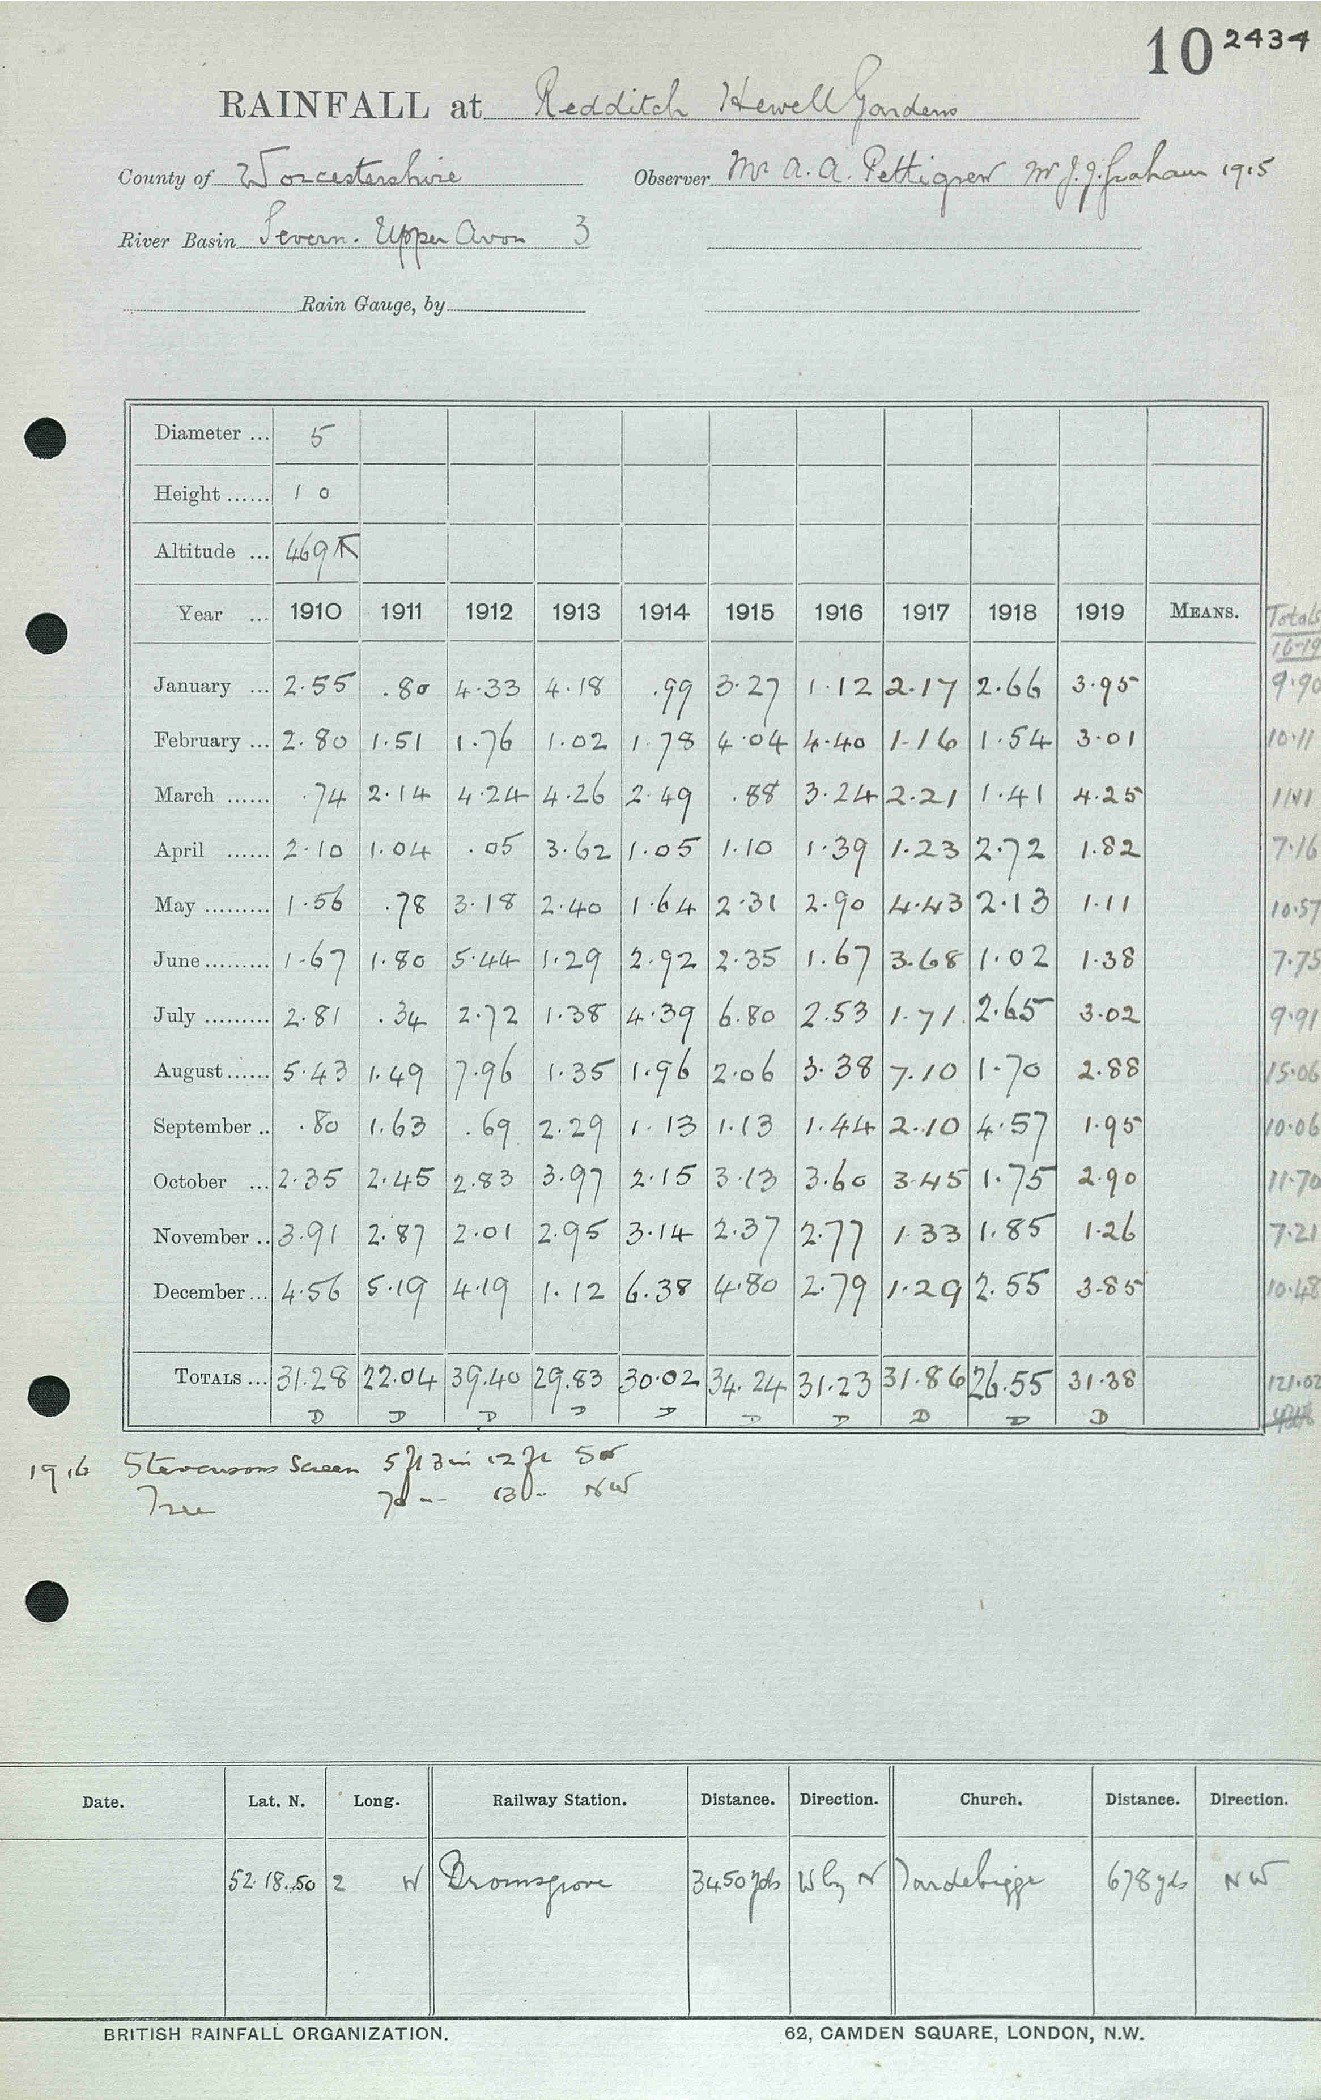 10 2434
RAINFALL at Redditch Hewell Gardens
County of Worcestershire Observer Mr A. A. Pettigrew Mr J. J. Graham 1915
River Basin Severn. Upper Avon 3
Rain Gauge, by
Diameter ... 5
Height ...... 10
Altitude ... 469
Year ... 1910 1911 1912 1913 1914 1915 1916 1917 1918 1919 MEANS. Totals 16-19
January ... 2.55 .80 4.33 4.18 .99 3.27 1.12 2.17 2.66 3.95 9.90
February ... 2.80 1.51 1.76 1.02 1.78 4.04 4.40 1.16 1.54 3.01 10.11
March ...... .74 2.14 4.24 4.26 2.49 .88 3.24 2.21 1.41 4.25 11.11
April ...... 2.10 1.04 .05 3.62 1.05 1.10 1.39 1.23 2.72 1.82 7.16
May ......... 1.56 .78 3.18 2.40 1.64 2.31 2.90 4.43 2.13 1.11 10.57
June ......... 1.67 1.80 5.44 1.29 2.92 2.35 1.67 3.68 1.02 1.38 7.75
July ......... 2.81 .34 2.72 1.38 4.39 6.80 2.53 1.71 2.65 3.02 9.91
August ...... 5.43 1.49 7.96 1.35 1.96 2.06 3.38 7.10 1.70 2.88 15.06
September .. .80 1.63 .69 2.29 1.13 1.13 1.44 2.10 4.57 1.95 10.06
October ... 2.35 2.45 2.83 3.97 2.15 3.13 3.60 3.45 1.75 2.90 11.70
November .. 3.91 2.87 2.01 2.95 3.14 2.37 2.77 1.33 1.85 1.26 7.21
December ... 4.56 5.19 4.19 1.12 6.38 4.80 2.79 1.29 2.55 3.85 10.48
TOTALS ... 31.28 22.04 39.40 29.83 30.02 34.24 31.23 31.86 26.55 31.38 121.02
D D D D D D D D D D
1916 Stevensons Screen 5 ft 3 in 12 ft
Tree 70 130 NW
Date. Lat. N. Long. Railway Station. Distance. Direction. Church. Distance. Direction.
52.18.50 2 W Bromsgrove 3450 yds W by N Tardebigge 678 yds NW
BRITISH RAINFALL ORGANIZATION. 62, CAMDEN SQUARE, LONDON, N.W.